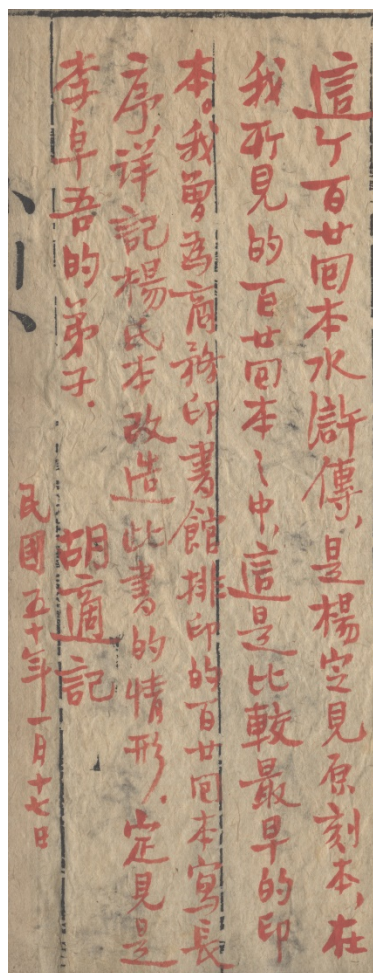 這个百廿囘本水滸傳，是楊定見原刻本，在
我所見的百廿囘本之中，這是比較最早的印
本。我曾為商務印書館排印的百廿囘本寫長
序，詳記楊氏本改造此書的情形．定見是
李卓吾的弟子．
胡適記
民國五十年一月十七日